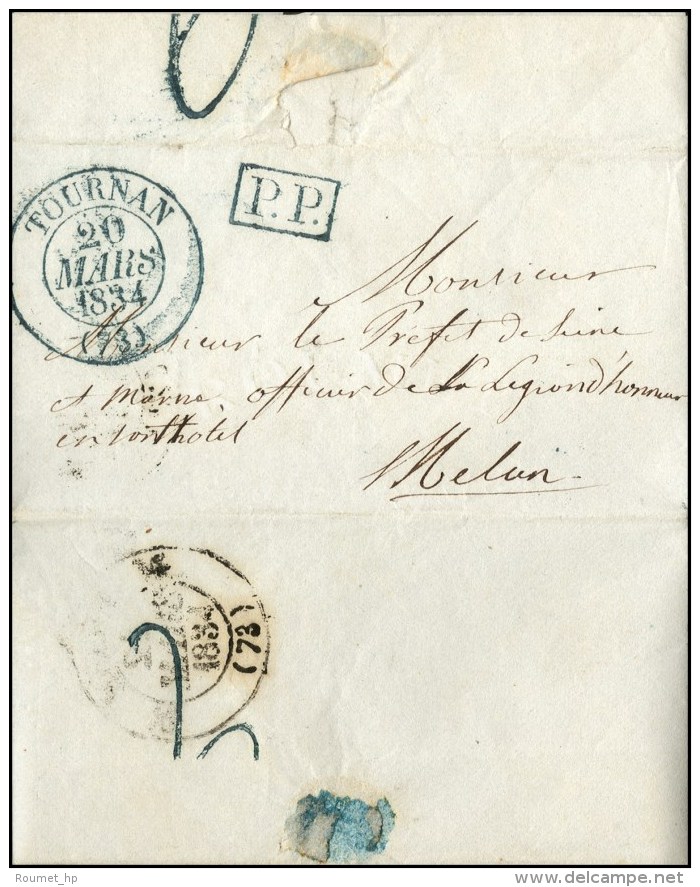 TOURNAN
20
MARS
1834
(73)
P.P.
Monsieur
Monsieur le Préfet de Seine
et marne officier De La Legiond'honneur
en sont hotel
Melun
1834
(73)
Roumet_hp
delcampe.net